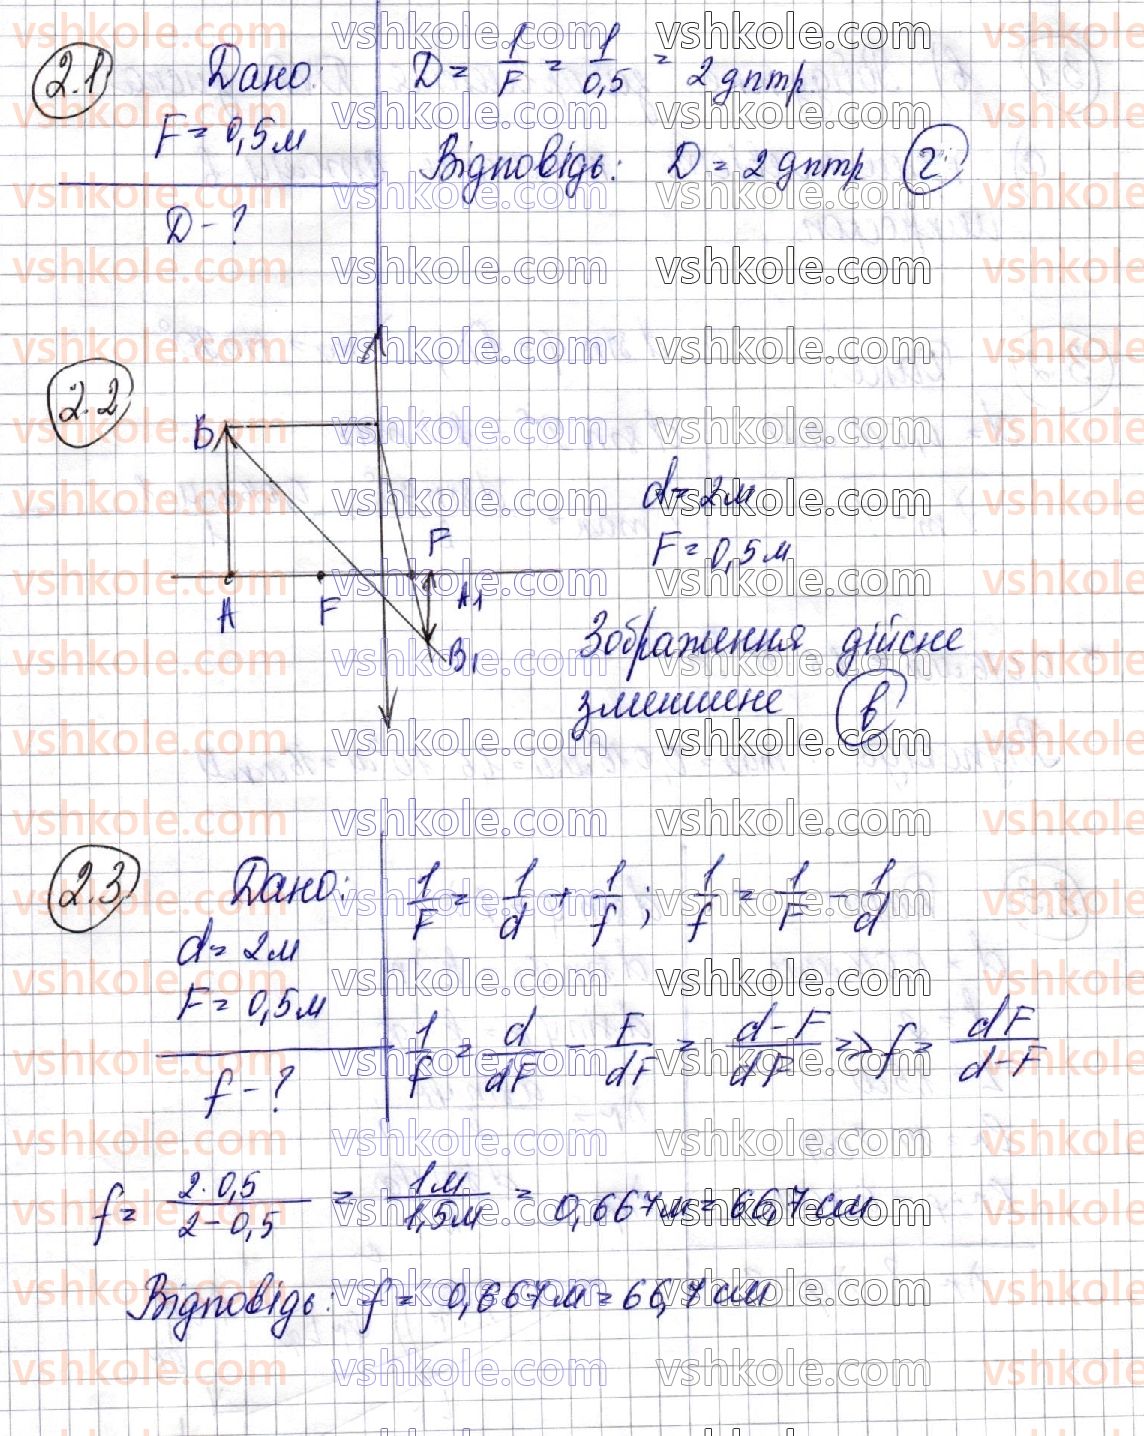 2.1
Дано:
F = 0,5 м
D - ?
D = 1/F = 1/0,5 = 2 дптр.
Відповідь: D = 2 дптр
г
2.2
B
A
F
F
A₁
B₁
d = 2 м
F = 0,5 м
Зображення дійсне
зменшене
в
2.3
Дано:
d = 2 м
F = 0,5 м
f - ?
1/F = 1/d + 1/f ; 1/f = 1/F - 1/d
1/f = d/dF - F/dF = d-F/dF => f = dF/d-F
f = 2·0,5/2-0,5 = 1 м/1,5 м = 0,667 м = 66,7 см
Відповідь: f = 0,667 м = 66,7 см
vshkole.com